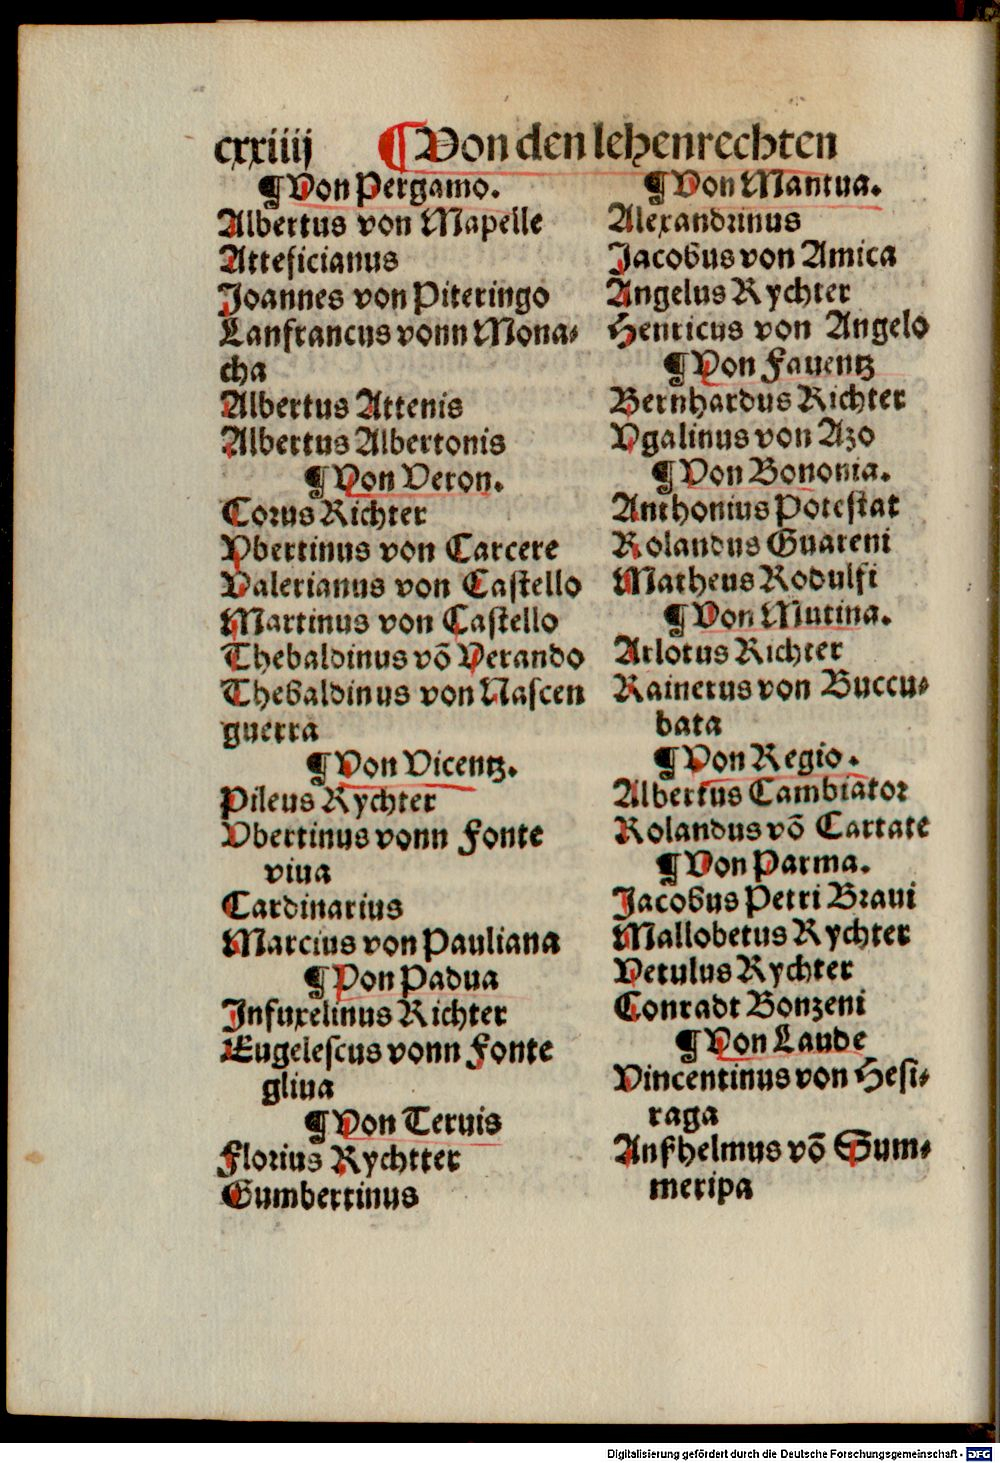 cxxiiij ¶Von den lehenrechten
¶Von Pergamo.
Albertus von Mapelle
Atteficianus
Joannes von Piteringo
Lanfrancus vonn Mona⸗
cha
Albertus Attenis
Albertus Albertonis
¶Von Veron.
Corus Richter
Vbertinus von Carcere
Valerianus von Castello
Martinus von Castello
Thebaldinus võ Verando
Thebaldinus von Nascen
guerra
¶Von Vicentz.
Pileus Rychter
Vbertinus vonn Fonte
viua
Cardinarius
Marcius von Pauliana
¶Von Padua
Infuxelinus Richter
Eugelescus vonn Fonte
gliua
¶Von Teruis
Florius Rychtter
Gumbertinus
¶Von Mantua.
Alexandrinus
Jacobus von Amica
Angelus Rychter
Henricus von Angelo
¶Von Fauentz
Bernhardus Richter
Vgalinus von Azo
¶Von Bononia.
Anthonius Potestat
Rolandus Guareni
Matheus Rodulfi
¶Von Mutina.
Arlotus Richter
Rainerus von Buccu⸗
bata
¶Von Regio.
Albertus Cambiator
Rolandus võ Cartate
¶Von Parma.
Jacobus Petri Braui
Mallobetus Rychter
Vetulus Rychter
Conradt Bonzeni
¶Von Laude
Vincentinus von Hesi⸗
raga
Anshelmus võ Sum⸗
meripa
Digitalisierung gefördert durch die Deutsche Forschungsgemeinschaft - DFG